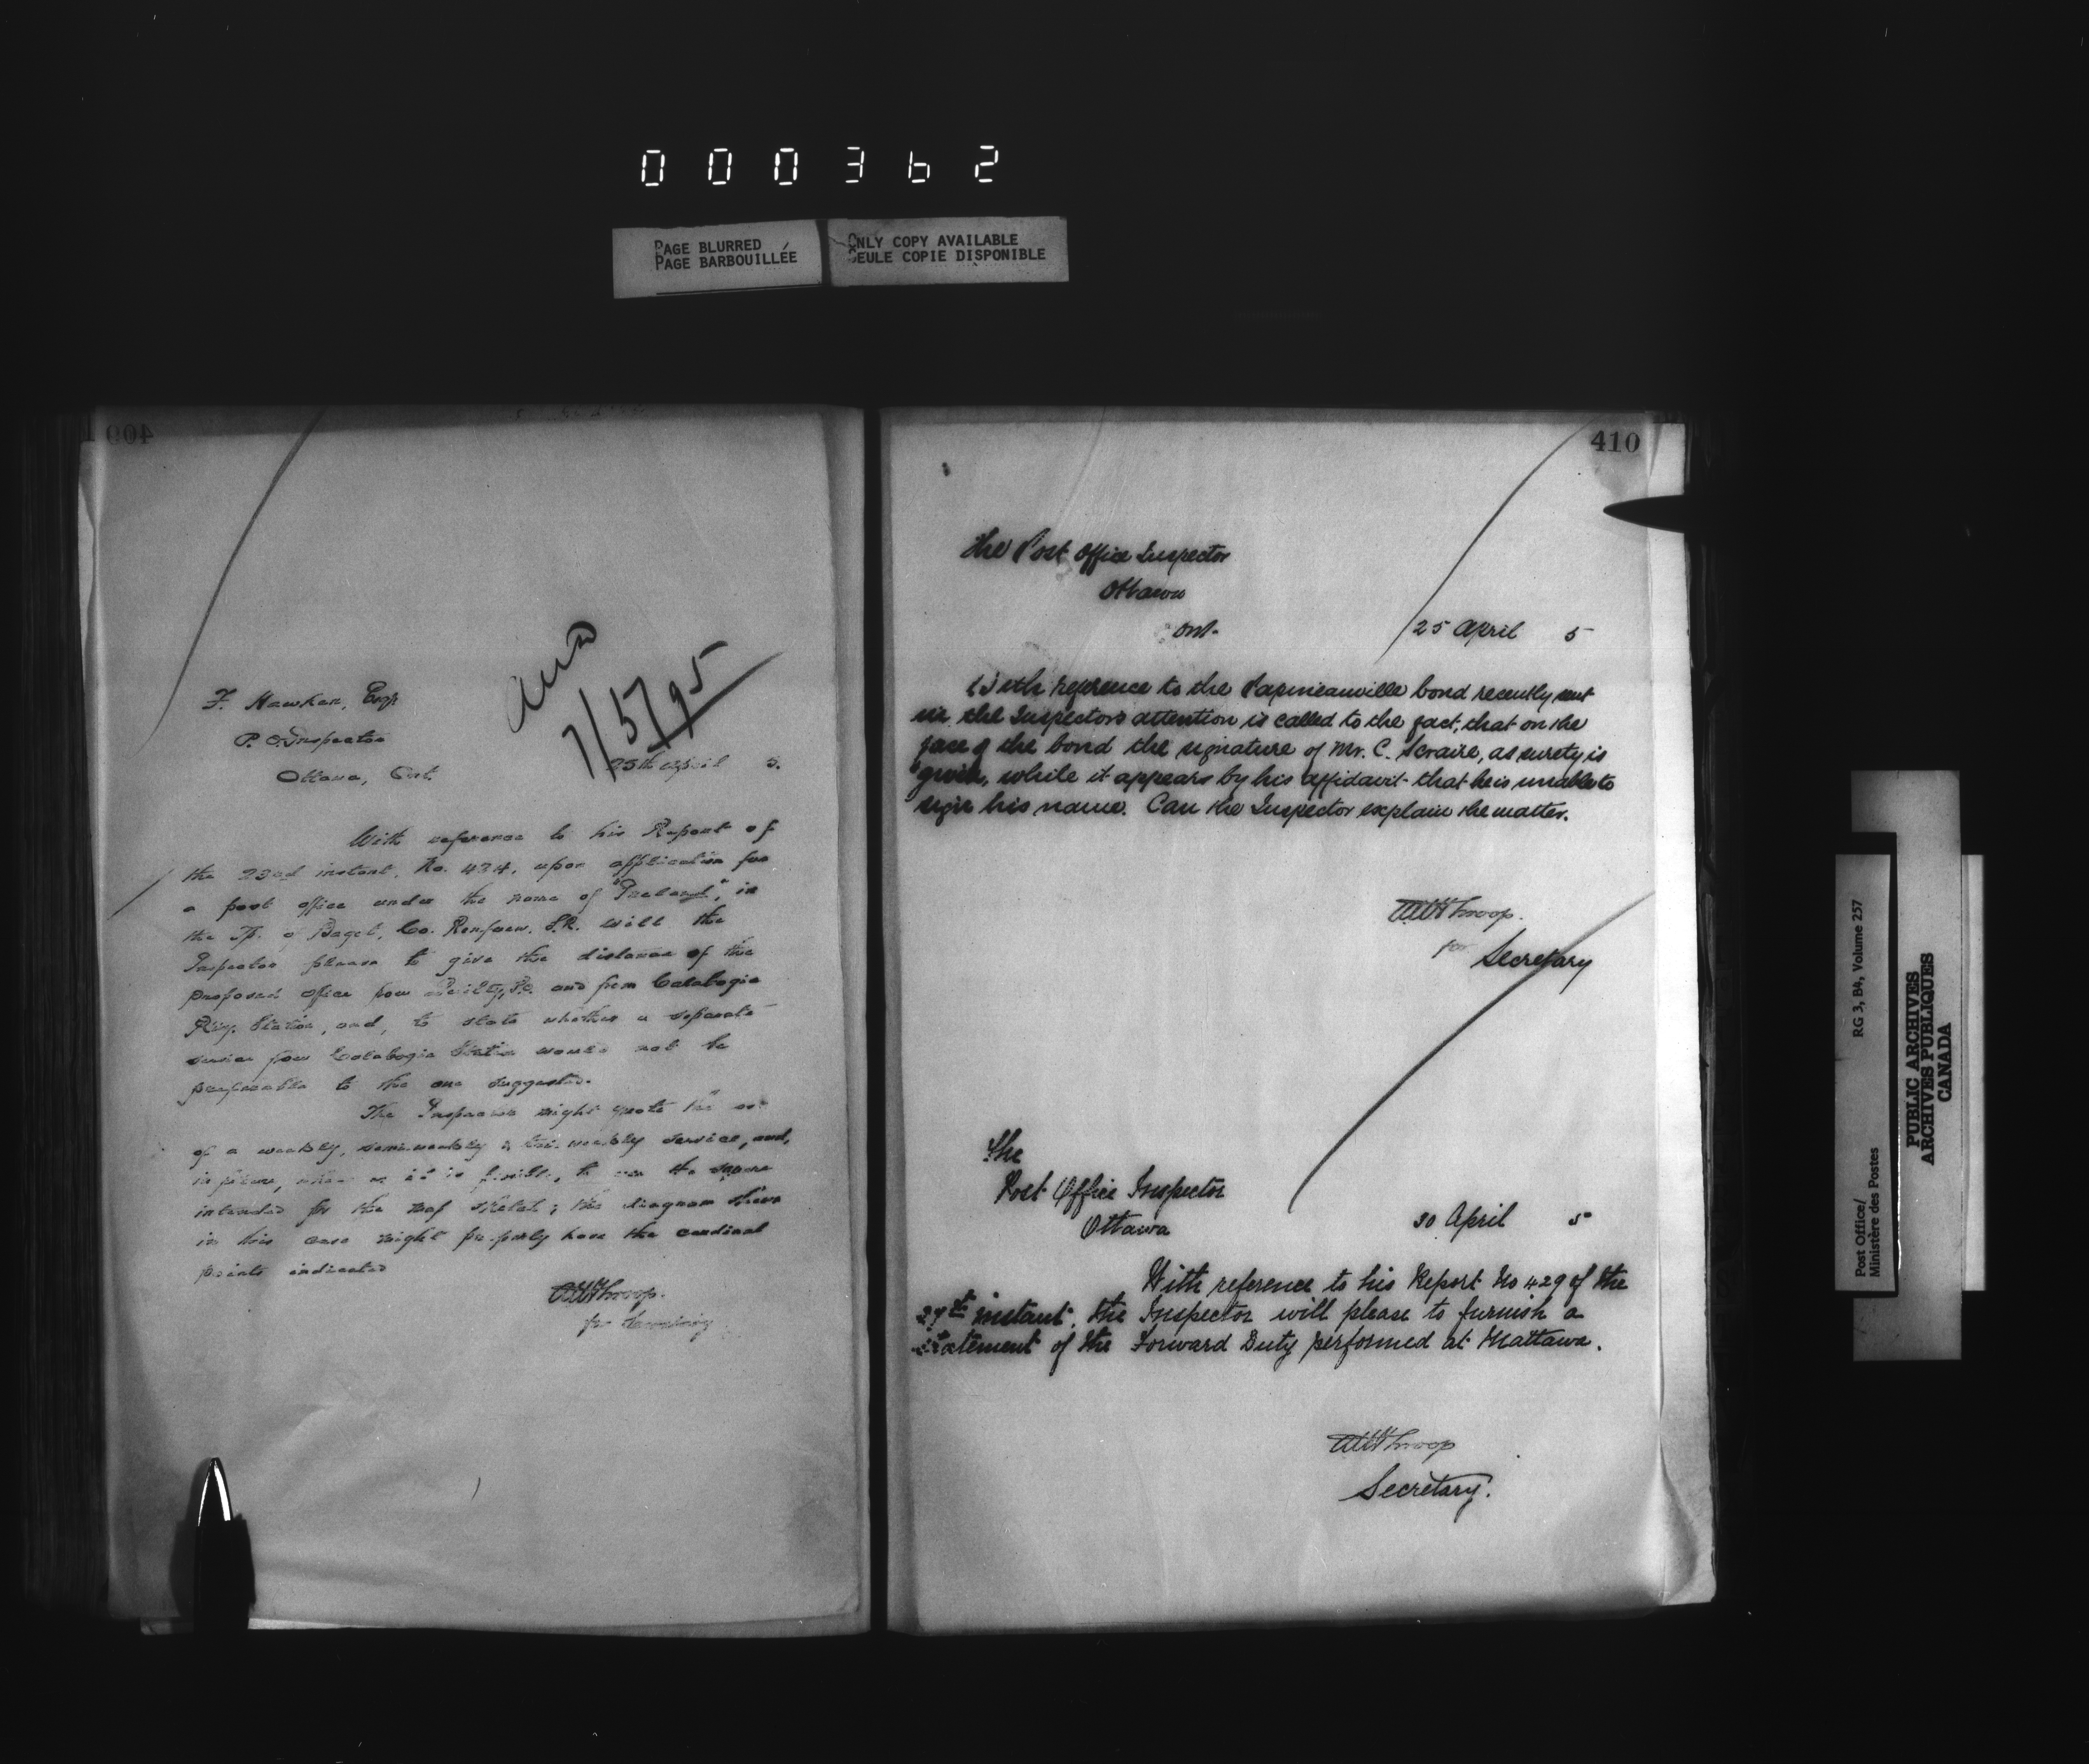 000362
PAGE BLURRED
PAGE BARBOUILLÉE
ONLY COPY AVAILABLE
SEULE COPIE DISPONIBLE
409
F. Hawken, Esq.
P.O. Inspector
Ottawa, Ont.
Ans
7/5/95
25th April 5.
With reference to his Report of
the 23rd instant, No. 424, upon application for
a post office under the name of "Ireland", in
the Tp. of Bagot, Co. Renfrew, S.R. will the
Inspector please to give the distance of the
proposed office from P.O. and from Calabogie
Rwy. Station, and, to state whether a separate
service from Calabogie Station would not be
preferable to the one suggested.
The Inspector might quote the
of a weekly, semi-weekly & tri-weekly service, and,
in future, when it is possible, to use the square
intended for the map sketch; the diagram shewn
in this case might properly have the cardinal
points indicated
WWThroop.
for Secretary
410
The Post Office Inspector
Ottawa
Ont.
25 April 5
With reference to the Papineauville bond recently sent
in the Inspectors attention is called to the fact, that on the
face of the bond the signature of Mr. C. Scraire, as surety is
given, while it appears by his affidavit that he is unable to
sign his name. Can the Inspector explain the matter.
WWThroop.
for Secretary
The
Post Office Inspector
Ottawa
30 April 5
With reference to his Report No 429 of the
27th instant, the Inspector will please to furnish a
statement of the Forward Duty performed at Mattawa.
WWThroop
Secretary.
Post Office/
Ministère des Postes
RG 3, B4, Volume 257
PUBLIC ARCHIVES
ARCHIVES PUBLIQUES
CANADA